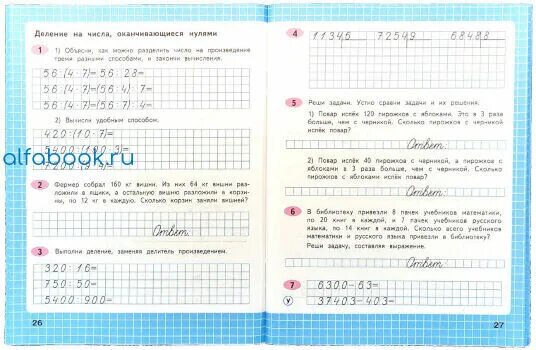 Деление на числа, оканчивающиеся нулями
1
1) Объясни, как можно разделить число на произведение
тремя разными способами, и закончи вычисления.
56:(4·7)=56:28=
56:(4·7)=(56:4):7=
56:(4·7)=(56:7):4=
2) Вычисли удобным способом.
420:(10·7)=
5400:(100·3)=
7200:(9·4)=
alfabook.ru
2
Фермер собрал 160 кг вишни. Из них 64 кг вишни раз-
ложили в ящики, а остальную вишню разложили в корзи-
ны, по 12 кг в каждую. Сколько корзин заняли вишней?
Ответ:
3
Выполни деление, заменяя делитель произведением.
320:16=
750:50=
5400:900=
26
4
1134 6 7254 9 6848 8
5
Реши задачи. Устно сравни задачи и их решения.
1) Повар испёк 120 пирожков с яблоками. Это в 3 раза
больше, чем с черникой. Сколько пирожков с черникой
испёк повар?
Ответ:
2) Повар испёк 40 пирожков с черникой, а пирожков с
яблоками в 3 раза больше, чем с черникой. Сколько
пирожков с яблоками испёк повар?
Ответ:
6
В библиотеку привезли 8 пачек учебников математики,
по 20 книг в каждой, и 7 пачек учебников русского
языка, по 14 книг в каждой. Сколько всего учебников
математики и русского языка привезли в библиотеку?
Реши задачу, составляя выражение.
Ответ:
7
6300-63=
У
37403-403=
27